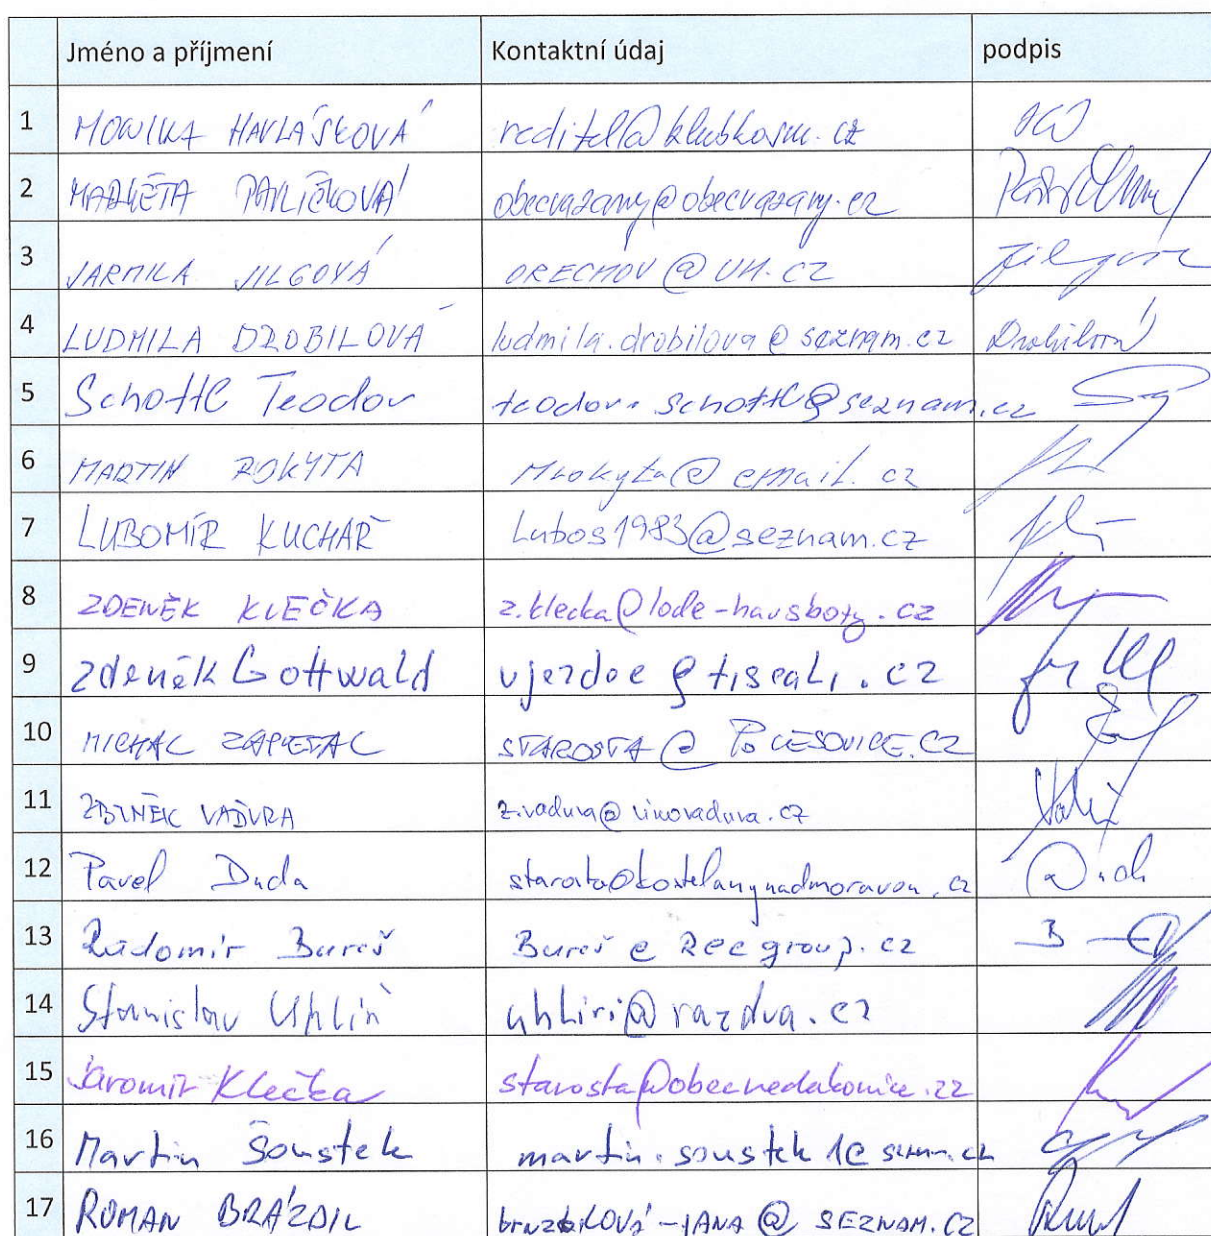 Jméno a příjmení Kontaktní údaj podpis
1 MONIKA HAVLÁSKOVÁ reditel@klubkosm.cz
2 MARKÉTA PAVLÍČKOVÁ obecvazany@obecvazany.cz
3 JARMILA JILGOVÁ ORECHOV@UH.CZ Jilgová
4 LUDMILA DROBILOVÁ ludmila.drobilova@seznam.cz Drobilová
5 Schottl Teodor teodor.schottl@seznam.cz
6 MARTIN ROKYTA Mrokyta@email.cz
7 LUBOMÍR KUCHAŘ Lubos1983@seznam.cz
8 ZDENĚK KLEČKA z.klecka@lode-hausboty.cz
9 Zdeněk Gottwald vjezdoe@tiscali.cz
10 MICHAL ZAPLETAL STAROSTA@POLESOVICE.CZ
11 ZBYNĚK VAĎURA z.vadura@vinovadura.cz
12 Pavel Duda starosta@kostelanynadmoravou.cz
13 Radomír Bureš Bureš@Recgroup.cz
14 Stanislav Uhlíř uhliri@razdva.cz
15 Jaromír Klečka starosta@obecnedakonice.cz
16 Martin Šoustek martin.soustek1@seznam.cz
17 ROMAN BRÁZDIL @SEZNAM.CZ